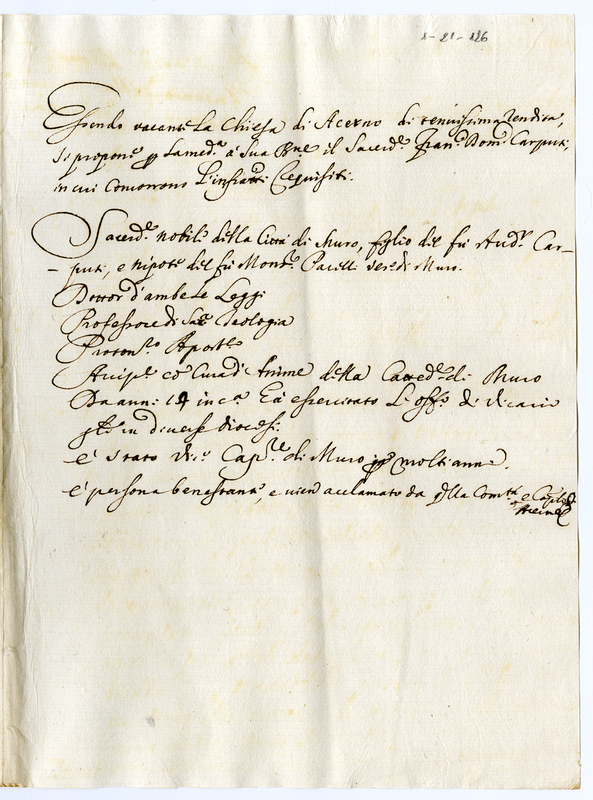 1-21-126
Essendo vacante la Chiesa di Acerno di tenuissima rendita,
si propone p la medᵃ a Sua Bne il Sacerdᵉ Franᶜ Domᶜ Carputi,
in cui concorrono l'infratti requisiti.
Sacerdᵉ nobile della Città di Muro, figlio del fù Andᵃ Car-
- puti, e nipote del fù Monsʳ Pacelli Vescᵒ di Muro.
Dottor d'ambe le Leggi
Professore di Saᶜ Teologia
Protonᵒ Apostᵒ
Arcipᵉ cō Cura di Anime della Cattedˡᵉ di Muro
Da anni 14 in cᵃ hà essercitato l'offᵒ di Vicario
gñle in diverse Diocesi.
è stato Vicᵒ Capʳᵉ di Muro p molti anni.
è persona benestante, e vien acclamato da qlla Comtà e Capiᵒ di
Acerno